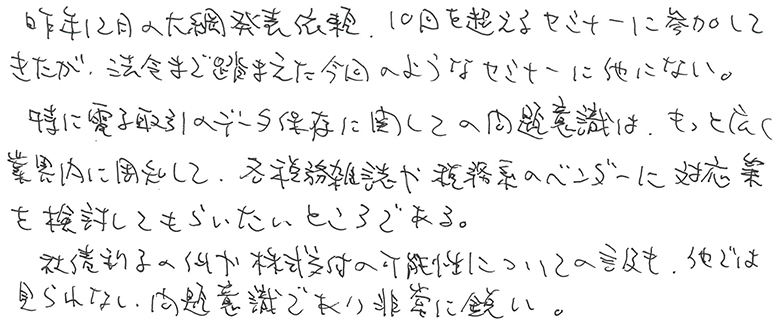 昨年12月の大綱発表依頼、10回を超えるセミナーに参加して
きたが、法令まで踏まえた今回のようなセミナーに他にない。
特に電子取引のデータ保存に関しての問題意識は、もっと広く
業界内に周知して、各税務雑誌や税務系のベンダーに対応策
を検討してもらいたいところである。
社債利子の件や株式交付の可能性についての言及も、他では
見られない問題意識であり非常に鋭い。